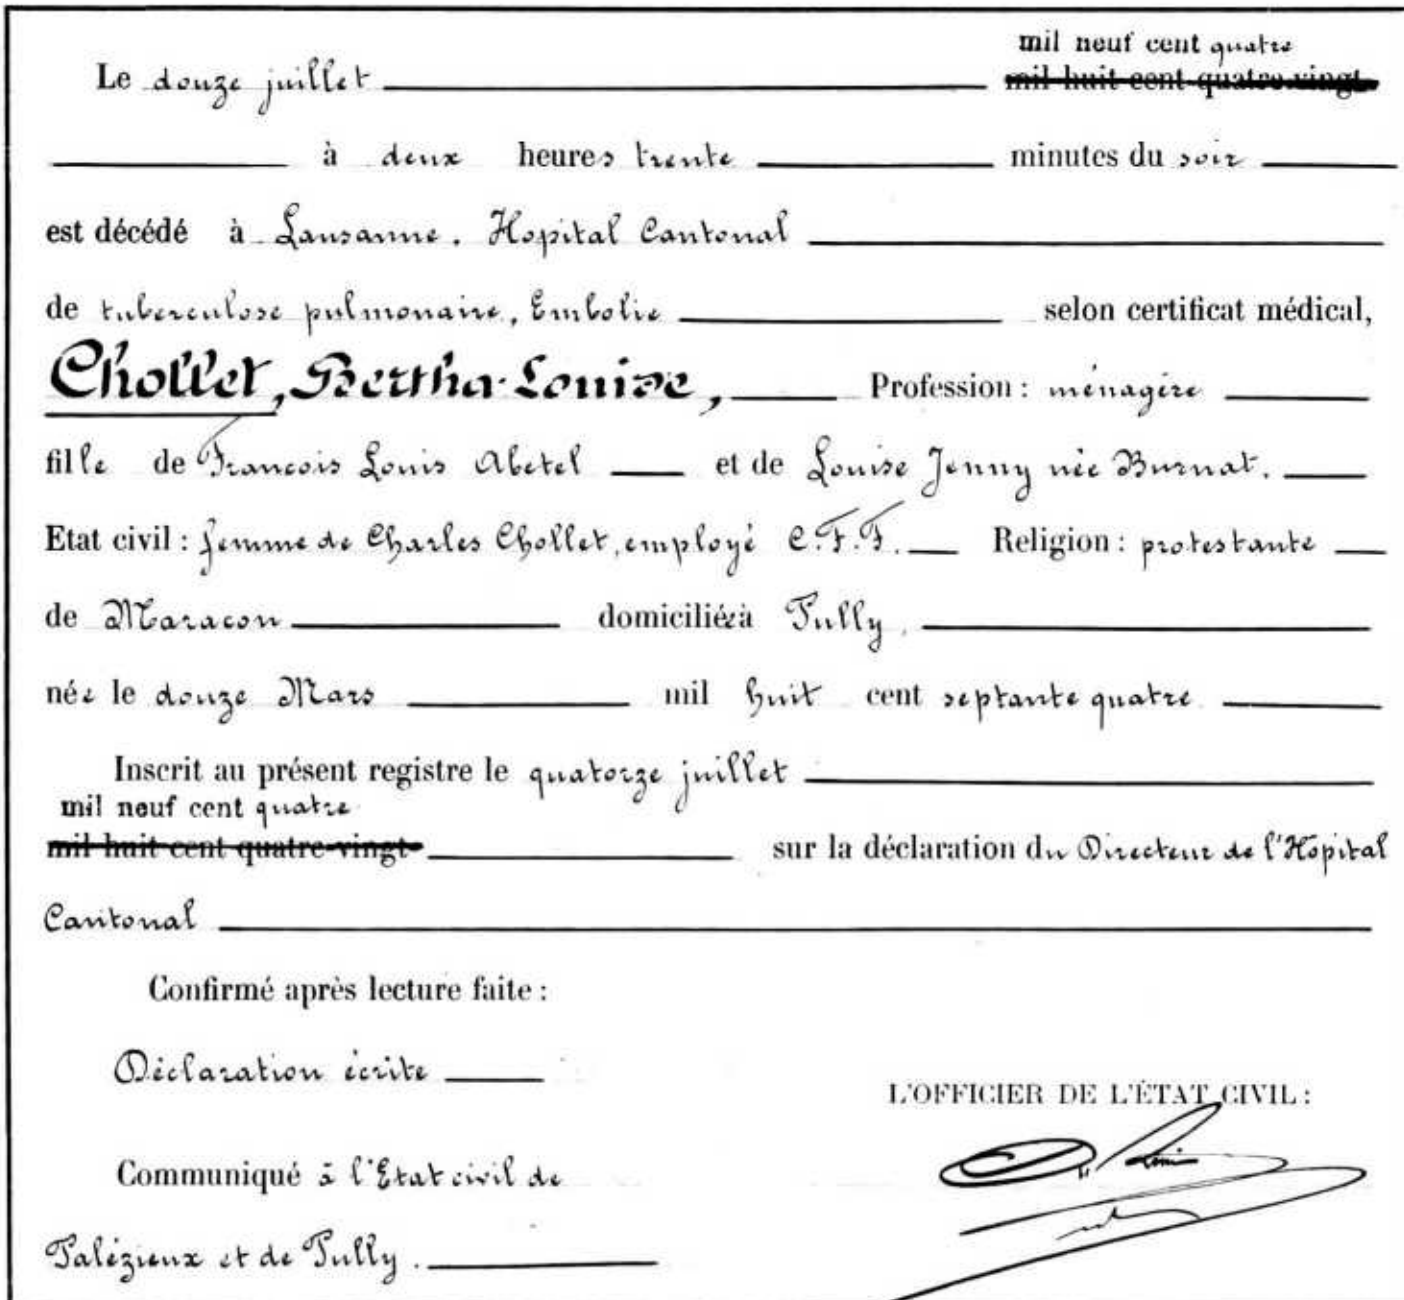 mil neuf cent quatre
Le douze juillet mil huit cent quatre-vingt
à deux heures trente minutes du soir
est décédé à Lausanne. Hopital Cantonal
de tuberculose pulmonaire, Embolie selon certificat médical,
Chollet, Bertha-Louise, Profession : ménagère
fille de François Louis Abetel et de Louise Jenny née Burnat.
Etat civil : femme de Charles Chollet, employé C.F.F. Religion : protestante
de Maracon domiciliée à Pully,
née le douze Mars mil huit cent septante quatre
Inscrit au présent registre le quatorze juillet
mil neuf cent quatre
mil huit cent quatre-vingt- sur la déclaration du Directeur de l'Hopital
Cantonal
Confirmé après lecture faite :
Déclaration écrite
L'OFFICIER DE L'ÉTAT CIVIL :
Communiqué à l'Etat civil de
Palézieux et de Pully.